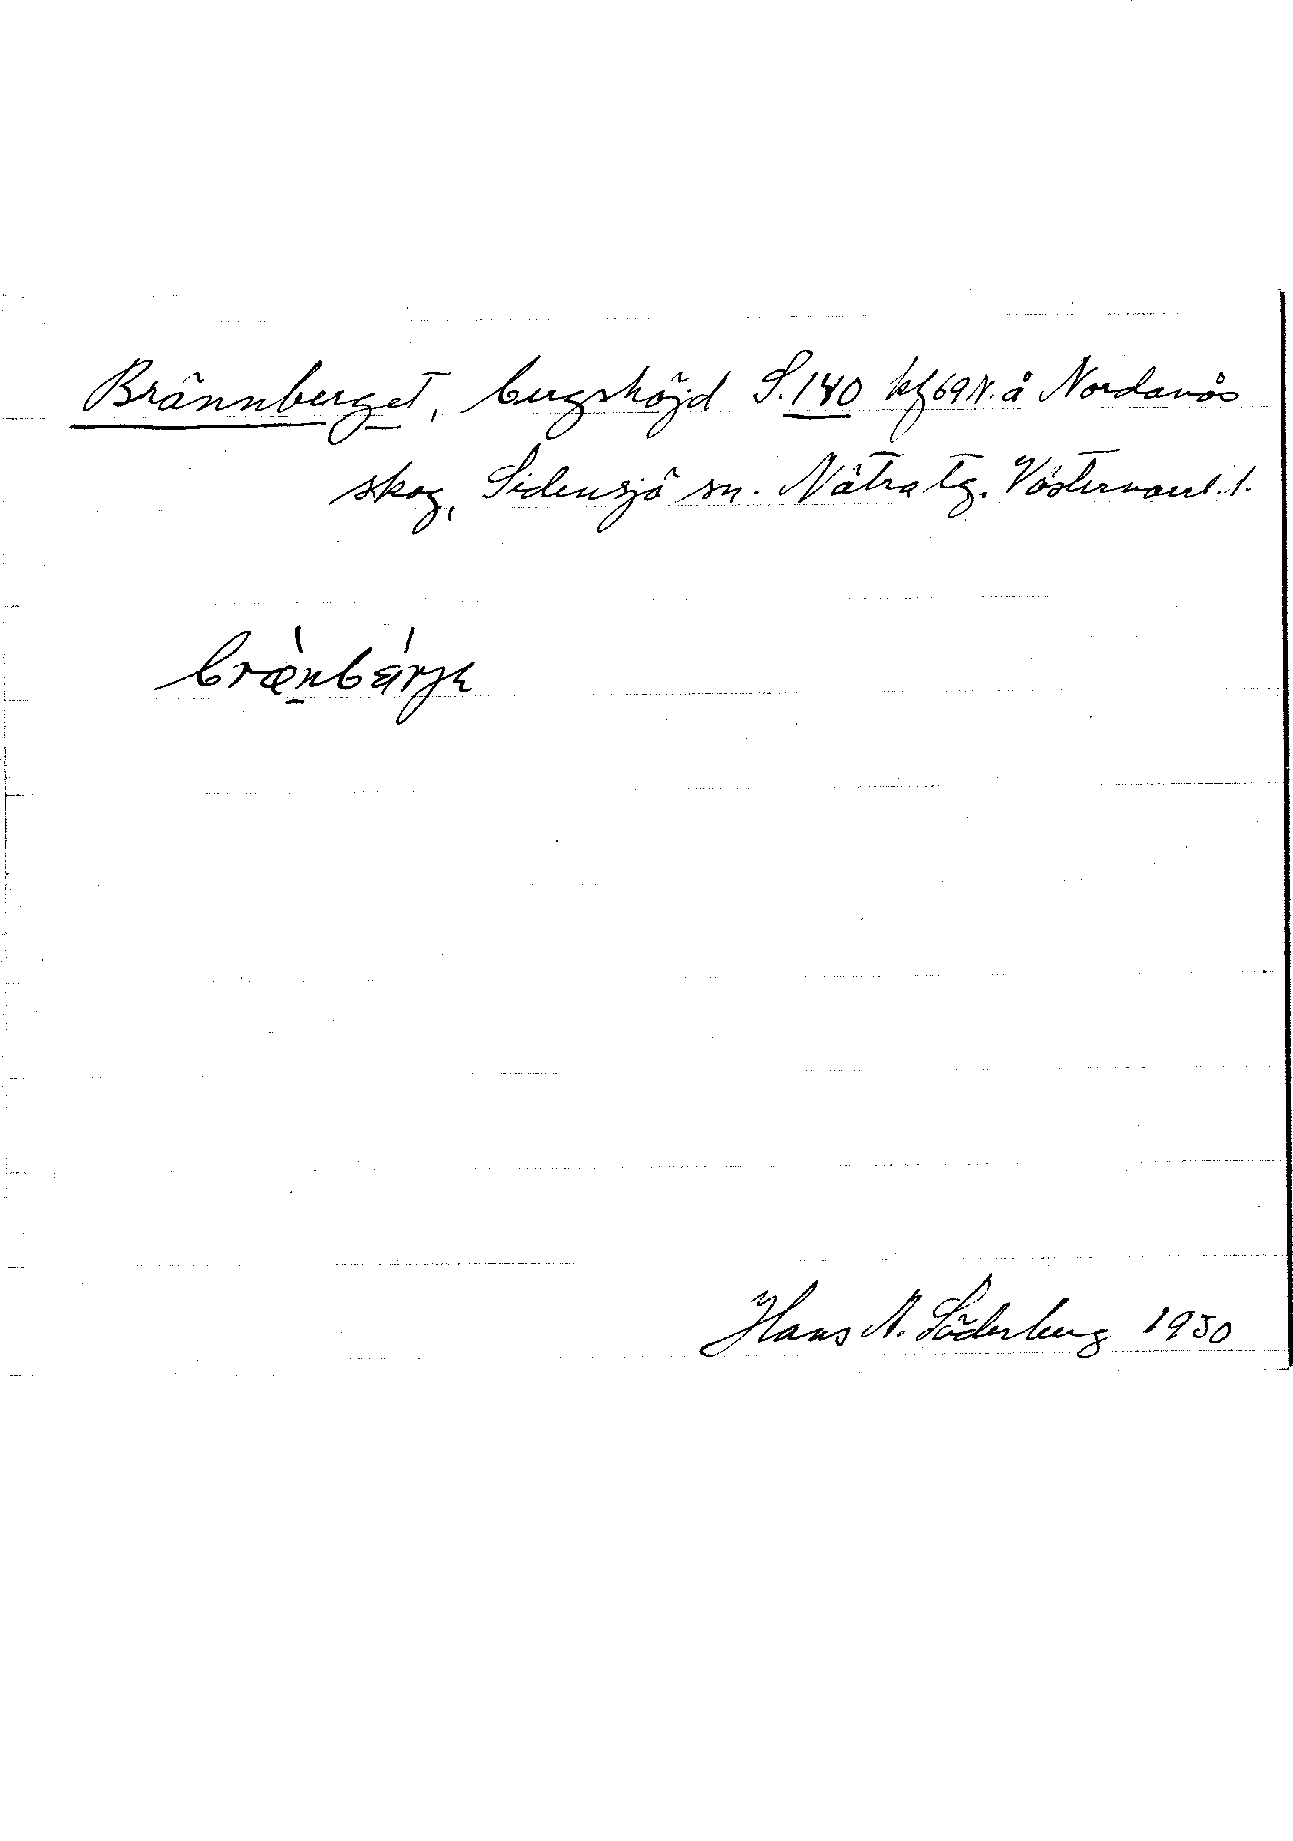 Brännberget, bergshöjd S.140 kf69N. å Nordanås
skog, Sidensjö sn. Nätra tg. Västernorrl. l.
Hans N. Söderberg 1930